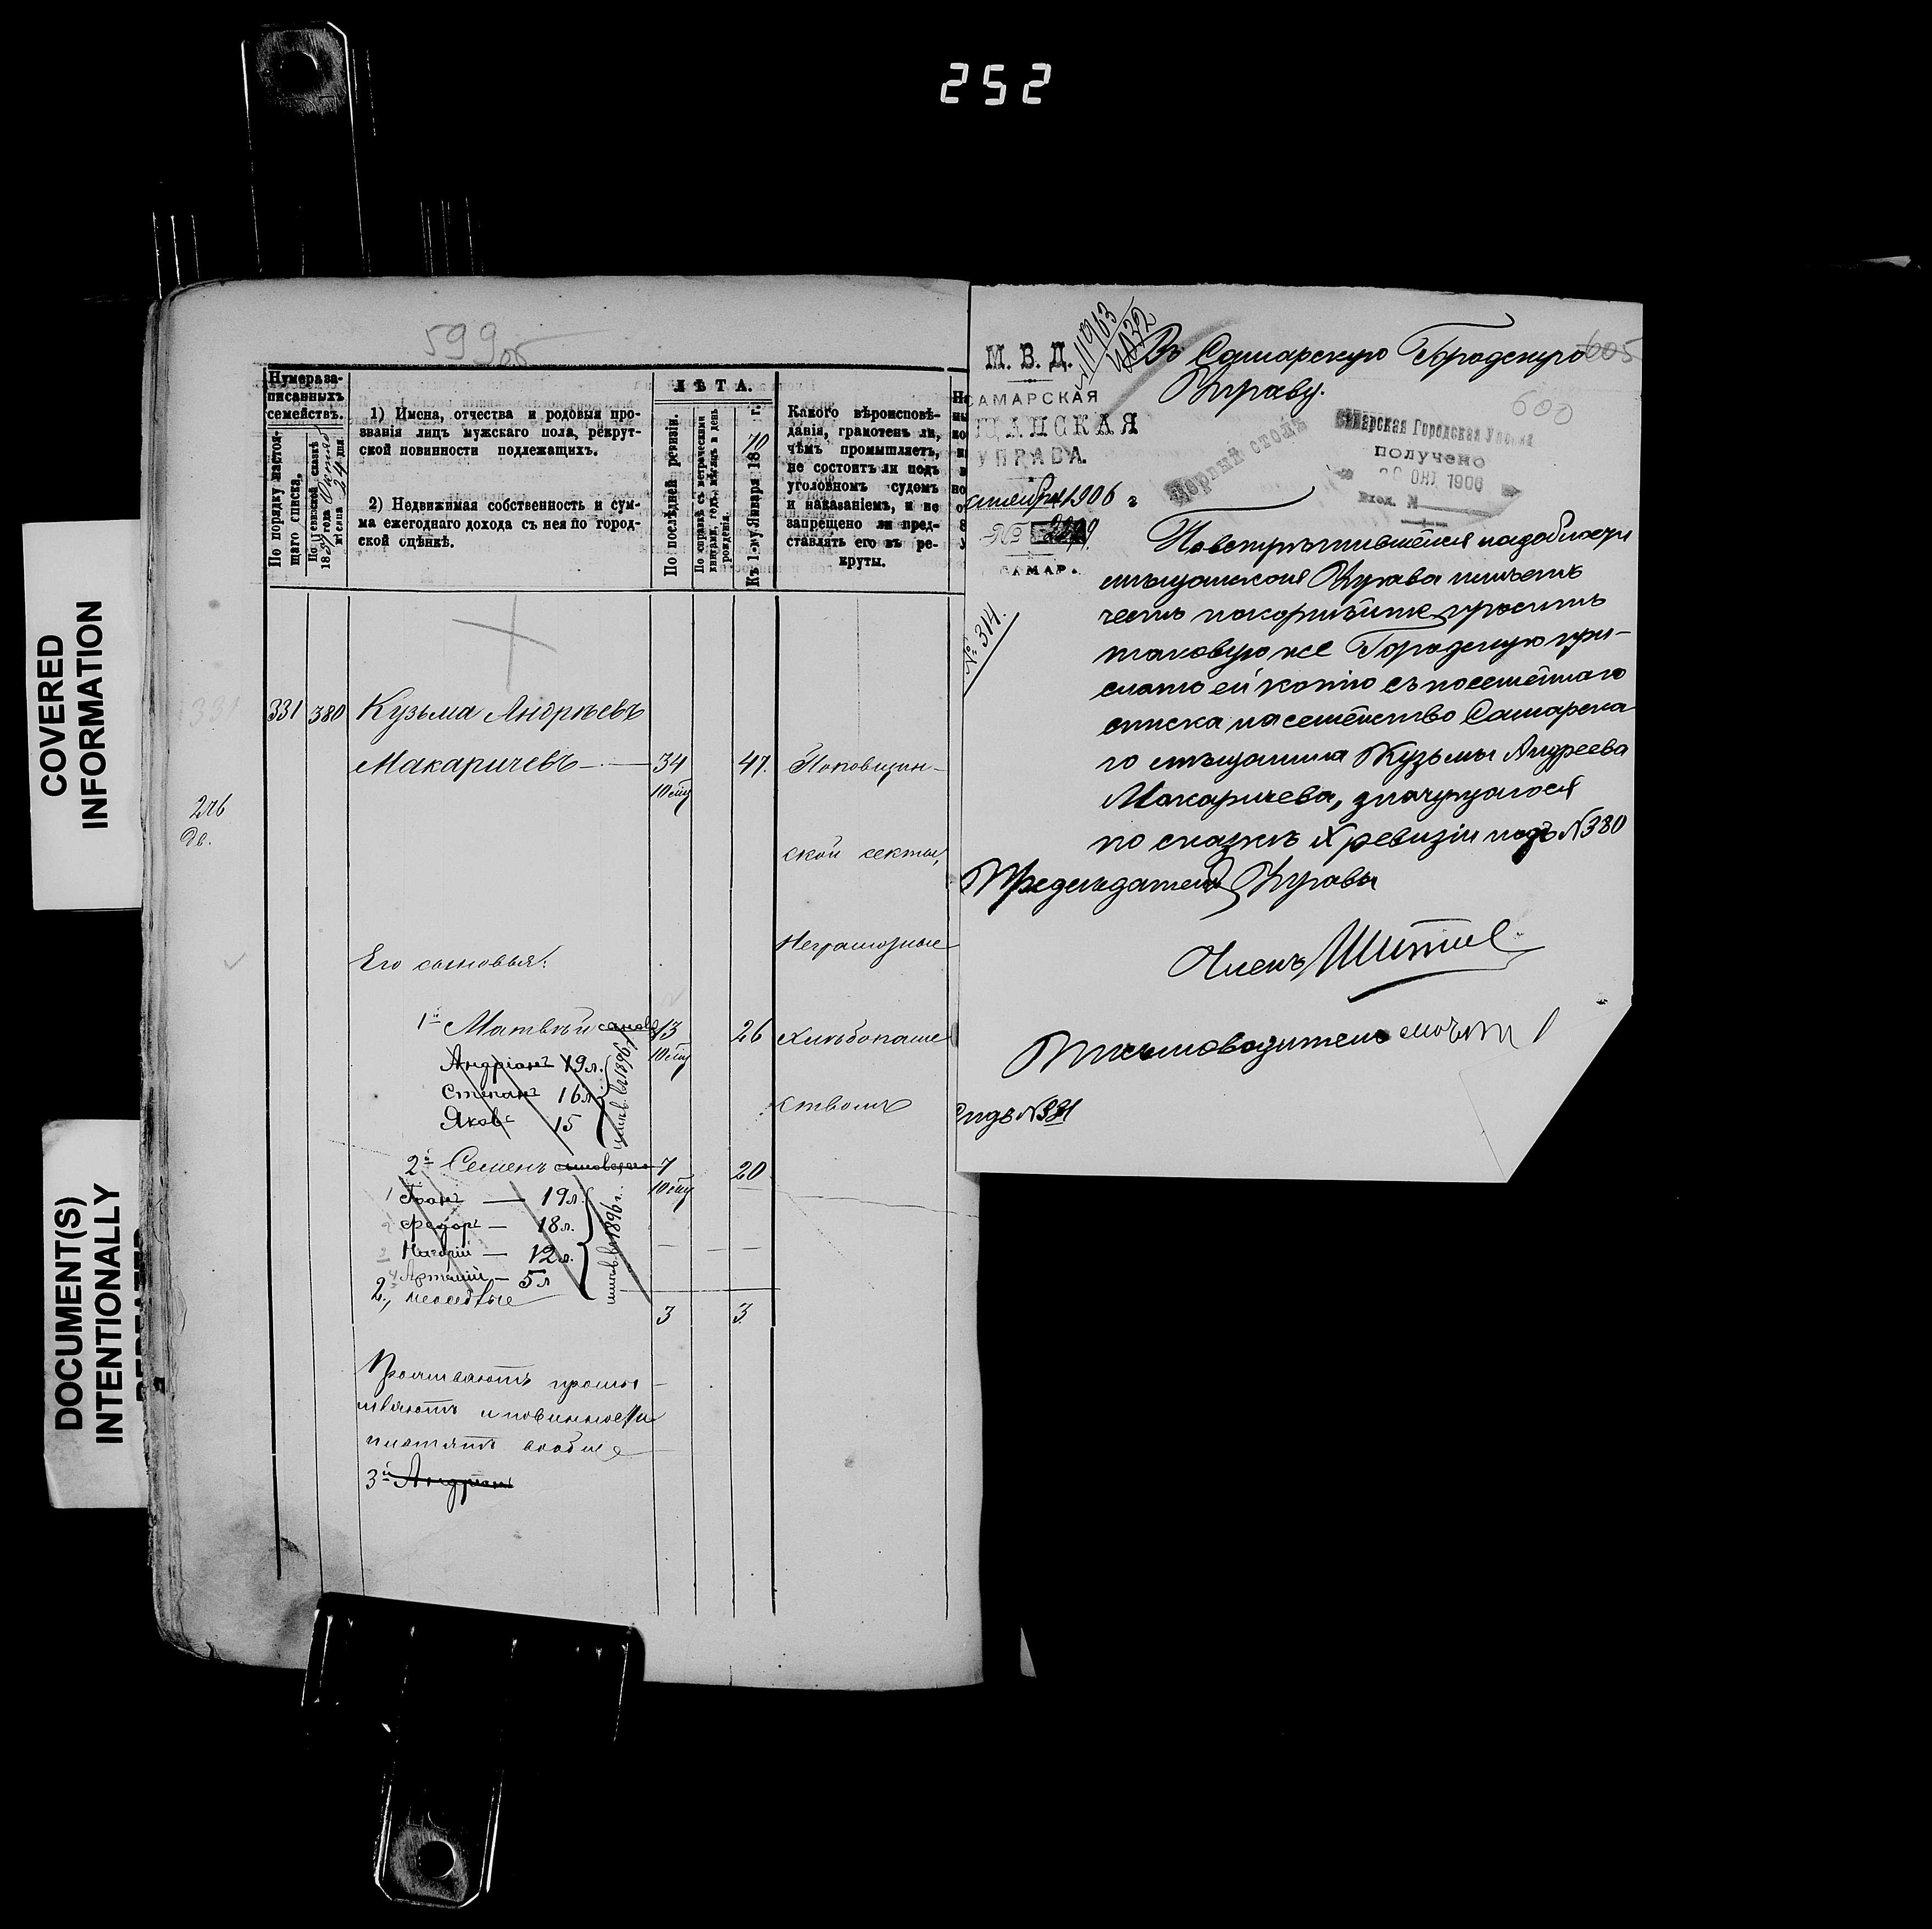 252
COVERED
INFORMATION
DOCUMENT(S)
INTENTIONALLY
599 об
Нумера за-
писанныхъ
семействъ.
По порядку настоя-
щаго списка.
По ревизской сказкѣ
18 года
мѣсяца 24 дня.
1) Имена, отчества и родовыя про-
званія лицъ мужскаго пола, рекрут-
ской повинности подлежащихъ.
2) Недвижимая собственность и сум-
ма ежегоднаго дохода съ нея по город-
ской оцѣнкѣ.
ЛѢТА.
По послѣдней ревизіи.
По справкѣ съ метрическими
книгами, годъ, мѣсяцъ и день
рожденія.
Къ 1-му Января 1870 г.
Какого вѣроисповѣ-
данія, грамотенъ ли,
чѣмъ промышляетъ,
не состоитъ ли подъ
уголовномъ судомъ
и наказаніемъ, и не
запрещено ли пред-
ставлять его въ ре-
круты.
331 380 Кузьма Андрѣевъ
Макаричевъ 34 47.
10 сму
276
дв.
ской секты,
Неграмотные
Его сыновья:
1й Матвѣй 13 26 хлѣбопаше
10 сму
Андріанъ 19 л.
Степанъ 16 л.
Яковъ 15
ствомъ
2й Семенъ 7 20
10 сму
1 Іванъ — 19 л.
2 Федоръ — 18 л.
3 — 12 л.
4 Артемій — 5 л
1896 г.
2,
3 3
Проживаютъ промы
шляютъ и повинности
платятъ вообще
3й Андріанъ
М. В. Д.
САМАРСКАЯ
ЩАНСКАЯ
УПРАВА.
1906 г
№
САМАР.
№ 11963
№ 314.
605
600
Въ Самарскую Городскую
Управу.
Первый столъ
Самарская Городская Управа
ПОЛУЧЕНО
ОКТ 1906
Вход. №
По встрѣтившейся надобности
мѣщанская Управа имѣетъ
честь покорнѣйше просить
таковую же Городскую при-
слать ей копію съ посемейнаго
списка на семейство Самарска
го мѣщанина Кузьмы Андреева
Макаричева, значущагося
по сказкѣ X ревизіи подъ № 380
Предсѣдатель Управы
Членъ
Письмоводитель
№ 331